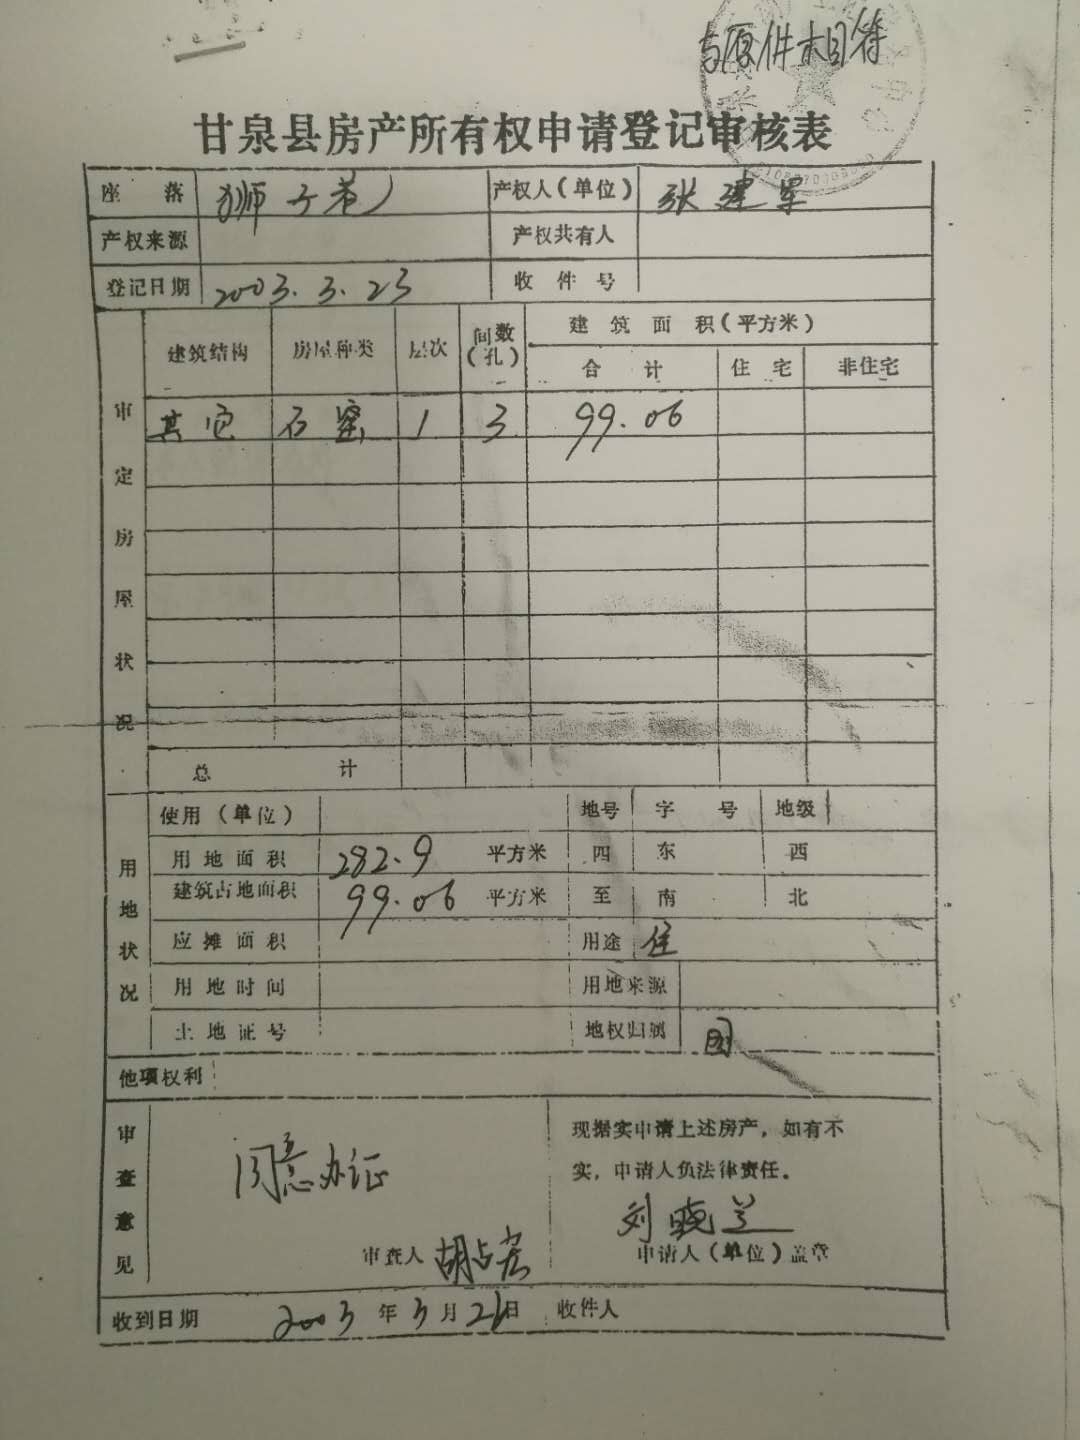 与原件相符
甘泉县房产所有权申请登记审核表
座 落 狮子巷 产权人(单位) 张建军
产权来源 产权共有人
登记日期 2003.3.23 收件号
审定房屋状况
建筑结构 房屋种类 层次 间数(孔) 建筑面积(平方米)
合计 住宅 非住宅
其它 石窑 1 3 99.06
总 计
用地状况
使用(单位) 地号 字 号 地级
用地面积 282.9 平方米 四 东 西
建筑占地面积 99.06 平方米 至 南 北
应摊面积 用途 住
用地时间 用地来源
土地证号 地权归属 国
他项权利
审查意见
同意办证
现据实申请上述房产,如有不
实,申请人负法律责任。
刘晓兰
审查人 胡占宏 申请人(单位)盖章
收到日期 2003年3月2 日 收件人